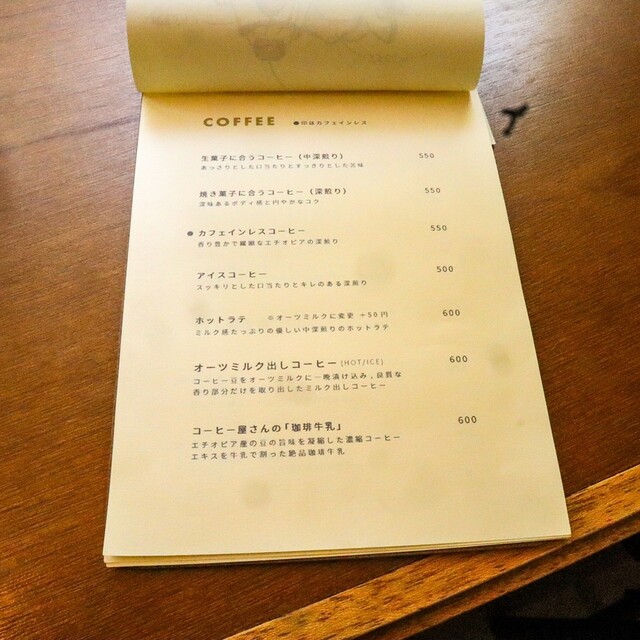 COFFEE ●印はカフェインレス
生菓子に合うコーヒー（中深煎り） 550
あっさりとした口当たりとすっきりとした苦味
焼き菓子に合うコーヒー（深煎り） 550
深味あるボディ感と円やかなコク
● カフェインレスコーヒー 550
香り豊かで繊細なエチオピアの深煎り
アイスコーヒー 500
スッキリとした口当たりとキレのある深煎り
ホットラテ ※オーツミルクに変更 +50円 600
ミルク感たっぷりの優しい中深煎りのホットラテ
オーツミルク出しコーヒー (HOT/ICE) 600
コーヒー豆をオーツミルクに一晩漬け込み、良質な
香り部分だけを取り出したミルク出しコーヒー
コーヒー屋さんの「珈琲牛乳」 600
エチオピア産の豆の旨味を凝縮した濃縮コーヒー
エキスを牛乳で割った絶品珈琲牛乳